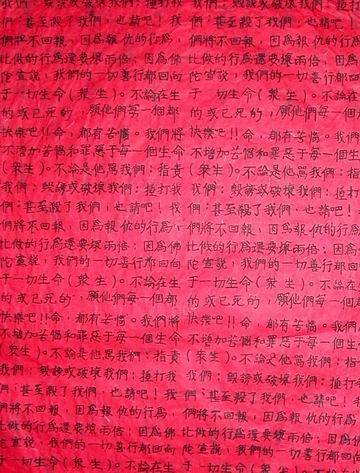 我們；毀謗或破壞我們；捶打我們；毀謗或破壞我們；捶打
們；甚至殺了我們，也請吧！我們；甚至殺了我們，也請吧！
們將不回報，因為報仇的行為，們將不回報，因為報仇的行為，
比做的行為還要壞兩倍；因為佛比做的行為還要壞兩倍；因為
陀宣說，我們的一切善行都回向陀宣說，我們的一切善行都回
于一切生命（衆生）。不論在生于一切生命（衆生）。不論在
的或已死的，願他們每一個都的或已死的，願他們每一個
快樂吧!!命，都有苦惱。我們將快樂吧!!命，都有苦惱。我們
不增加苦惱和罪惡于每一個生命不增加苦惱和罪惡于每一個生
（衆生）。不論是他罵我們；指責（衆生）。不論是他罵我們；指
我們；毀謗或破壞我們；捶打我們；毀謗或破壞我們；捶打
們；甚至殺了我們，也請吧！我們；甚至殺了我們，也請吧！
們將不回報，因為報仇的行為，們將不回報，因為報仇的行為，
比做的行為還要壞兩倍；因為佛比做的行為還要壞兩倍；因為
陀宣說，我們的一切善行都回向陀宣說，我們的一切善行都回
于一切生命（衆生）。不論在生于一切生命（衆生）。不論在
的或已死的，願他們每一個都的或已死的，願他們每一個
快樂吧!!命，都有苦惱。我們將快樂吧!!命，都有苦惱。我們
不增加苦惱和罪惡于每一個生命不增加苦惱和罪惡于每一個生
（衆生）。不論是他罵我們；指責（衆生）。不論是他罵我們；指
我們；毀謗或破壞我們；捶打我們；毀謗或破壞我們；捶打
們；甚至殺了我們，也請吧！我們；甚至殺了我們，也請吧！
們將不回報，因為報仇的行為，們將不回報，因為報仇的行為，
比做的行為還要壞兩倍；因為佛比做的行為還要壞兩倍；因為
陀宣說，我們的一切善行都回向陀宣說，我們的一切善行都回
于一切生命（衆生）。不論在生于一切生命（衆生）。不論在